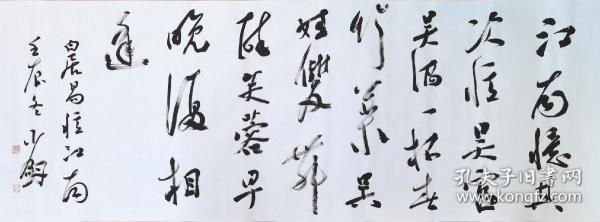 江南忆其
次忆吴宫
吴酒一杯春
竹叶吴
娃双舞
醉芙蓉早
晚复相
逢
白居易忆江南
壬辰冬
孔夫子旧书网
www.kongfz.com